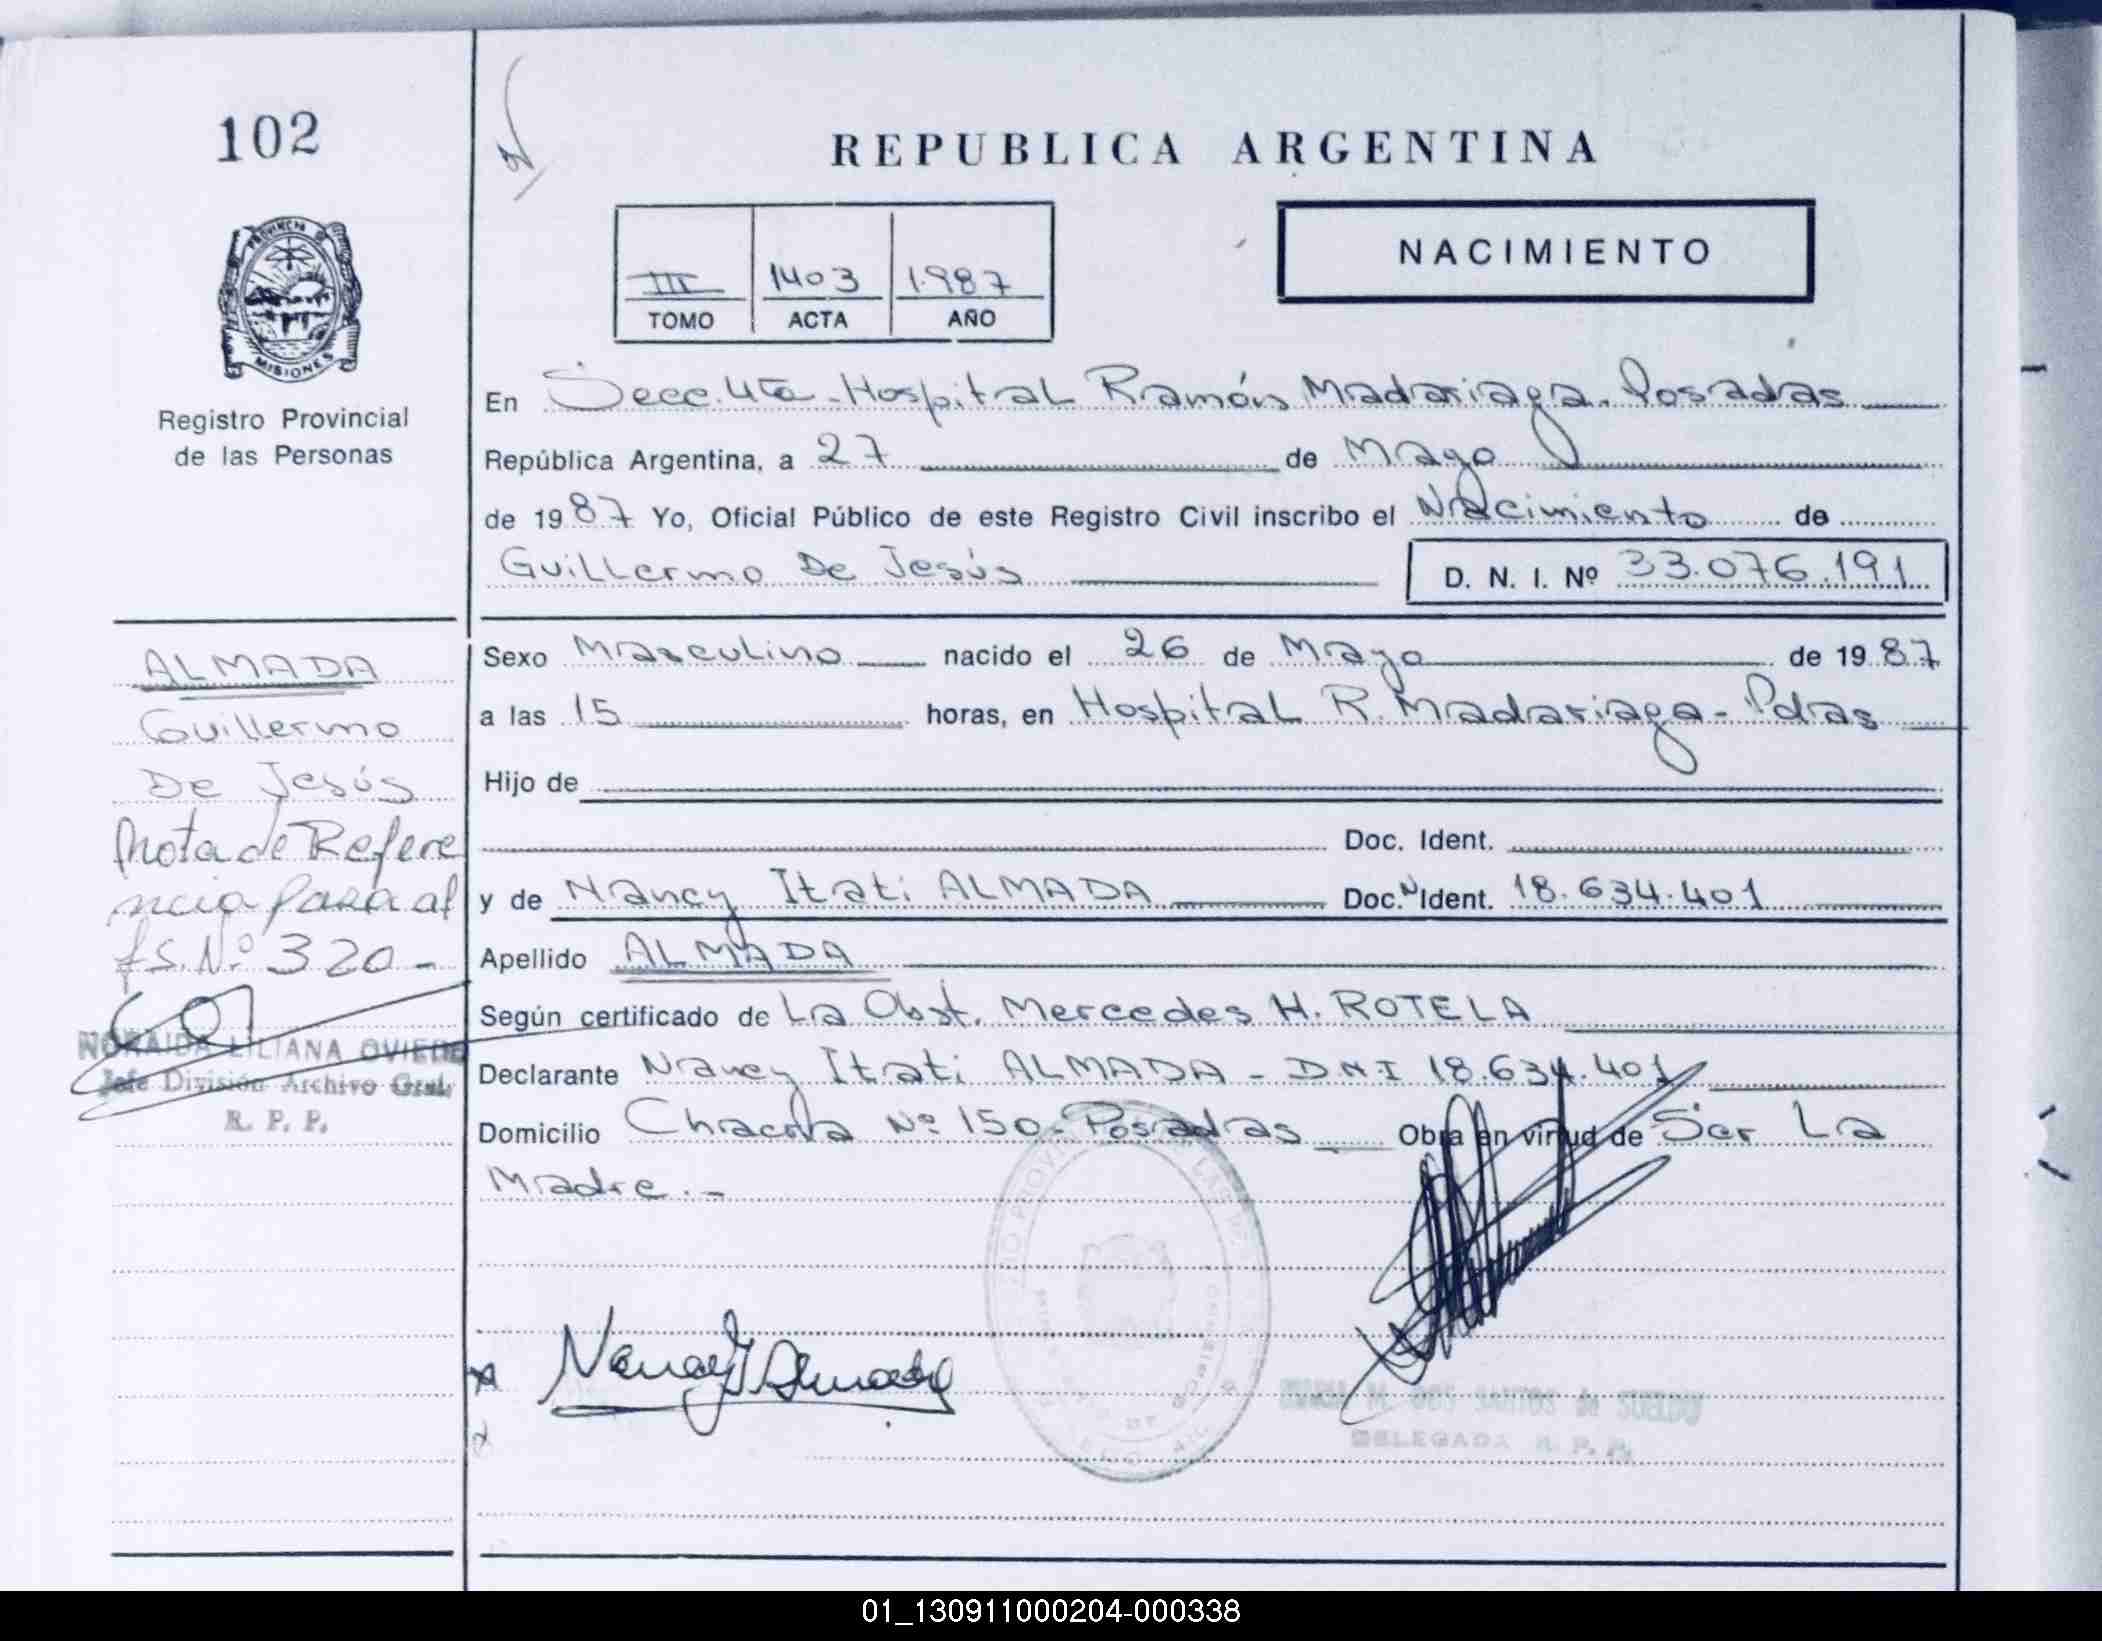 102
REPUBLICA ARGENTINA
NACIMIENTO
III 1403 1.987
TOMO ACTA AÑO
PROVINCIA DE
MISIONES
Registro Provincial
de las Personas
En Secc. 4ta - Hospital Ramón Madariaga. Posadas
República Argentina, a 27 de Mayo
de 1987 Yo, Oficial Público de este Registro Civil inscribo el Nacimiento de
Guillermo De Jesús D. N. I. Nº 33.076.191
Sexo Masculino nacido el 26 de Mayo de 1987
a las 15 horas, en Hospital R. Madariaga - Pdas
Hijo de
Doc. Ident.
y de Nancy Itati ALMADA Doc. N Ident. 18.634.401
Apellido ALMADA
Según certificado de La Obst. Mercedes H. ROTELA
Declarante Nancy Itati ALMADA - DNI 18.634.401
Domicilio Chacra Nº 150 - Posadas Obra en virtud de Ser La
Madre.-
ALMADA
Guillermo
De Jesús
Nota de Refere
ncia para al
fs. Nº 320 -
NORAIDA LILIANA OVIEDO
Jefe División Archivo Gral.
R. P. P.
Nancy I Almada
MARIA M. DOS SANTOS de SUELDO
DELEGADA R. P. P.
01_130911000204-000338